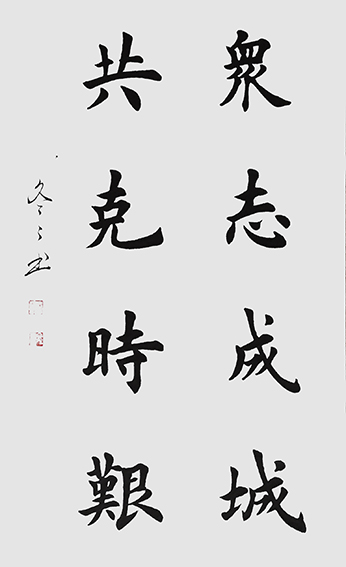 眾志成城
共克時艱
冬之书